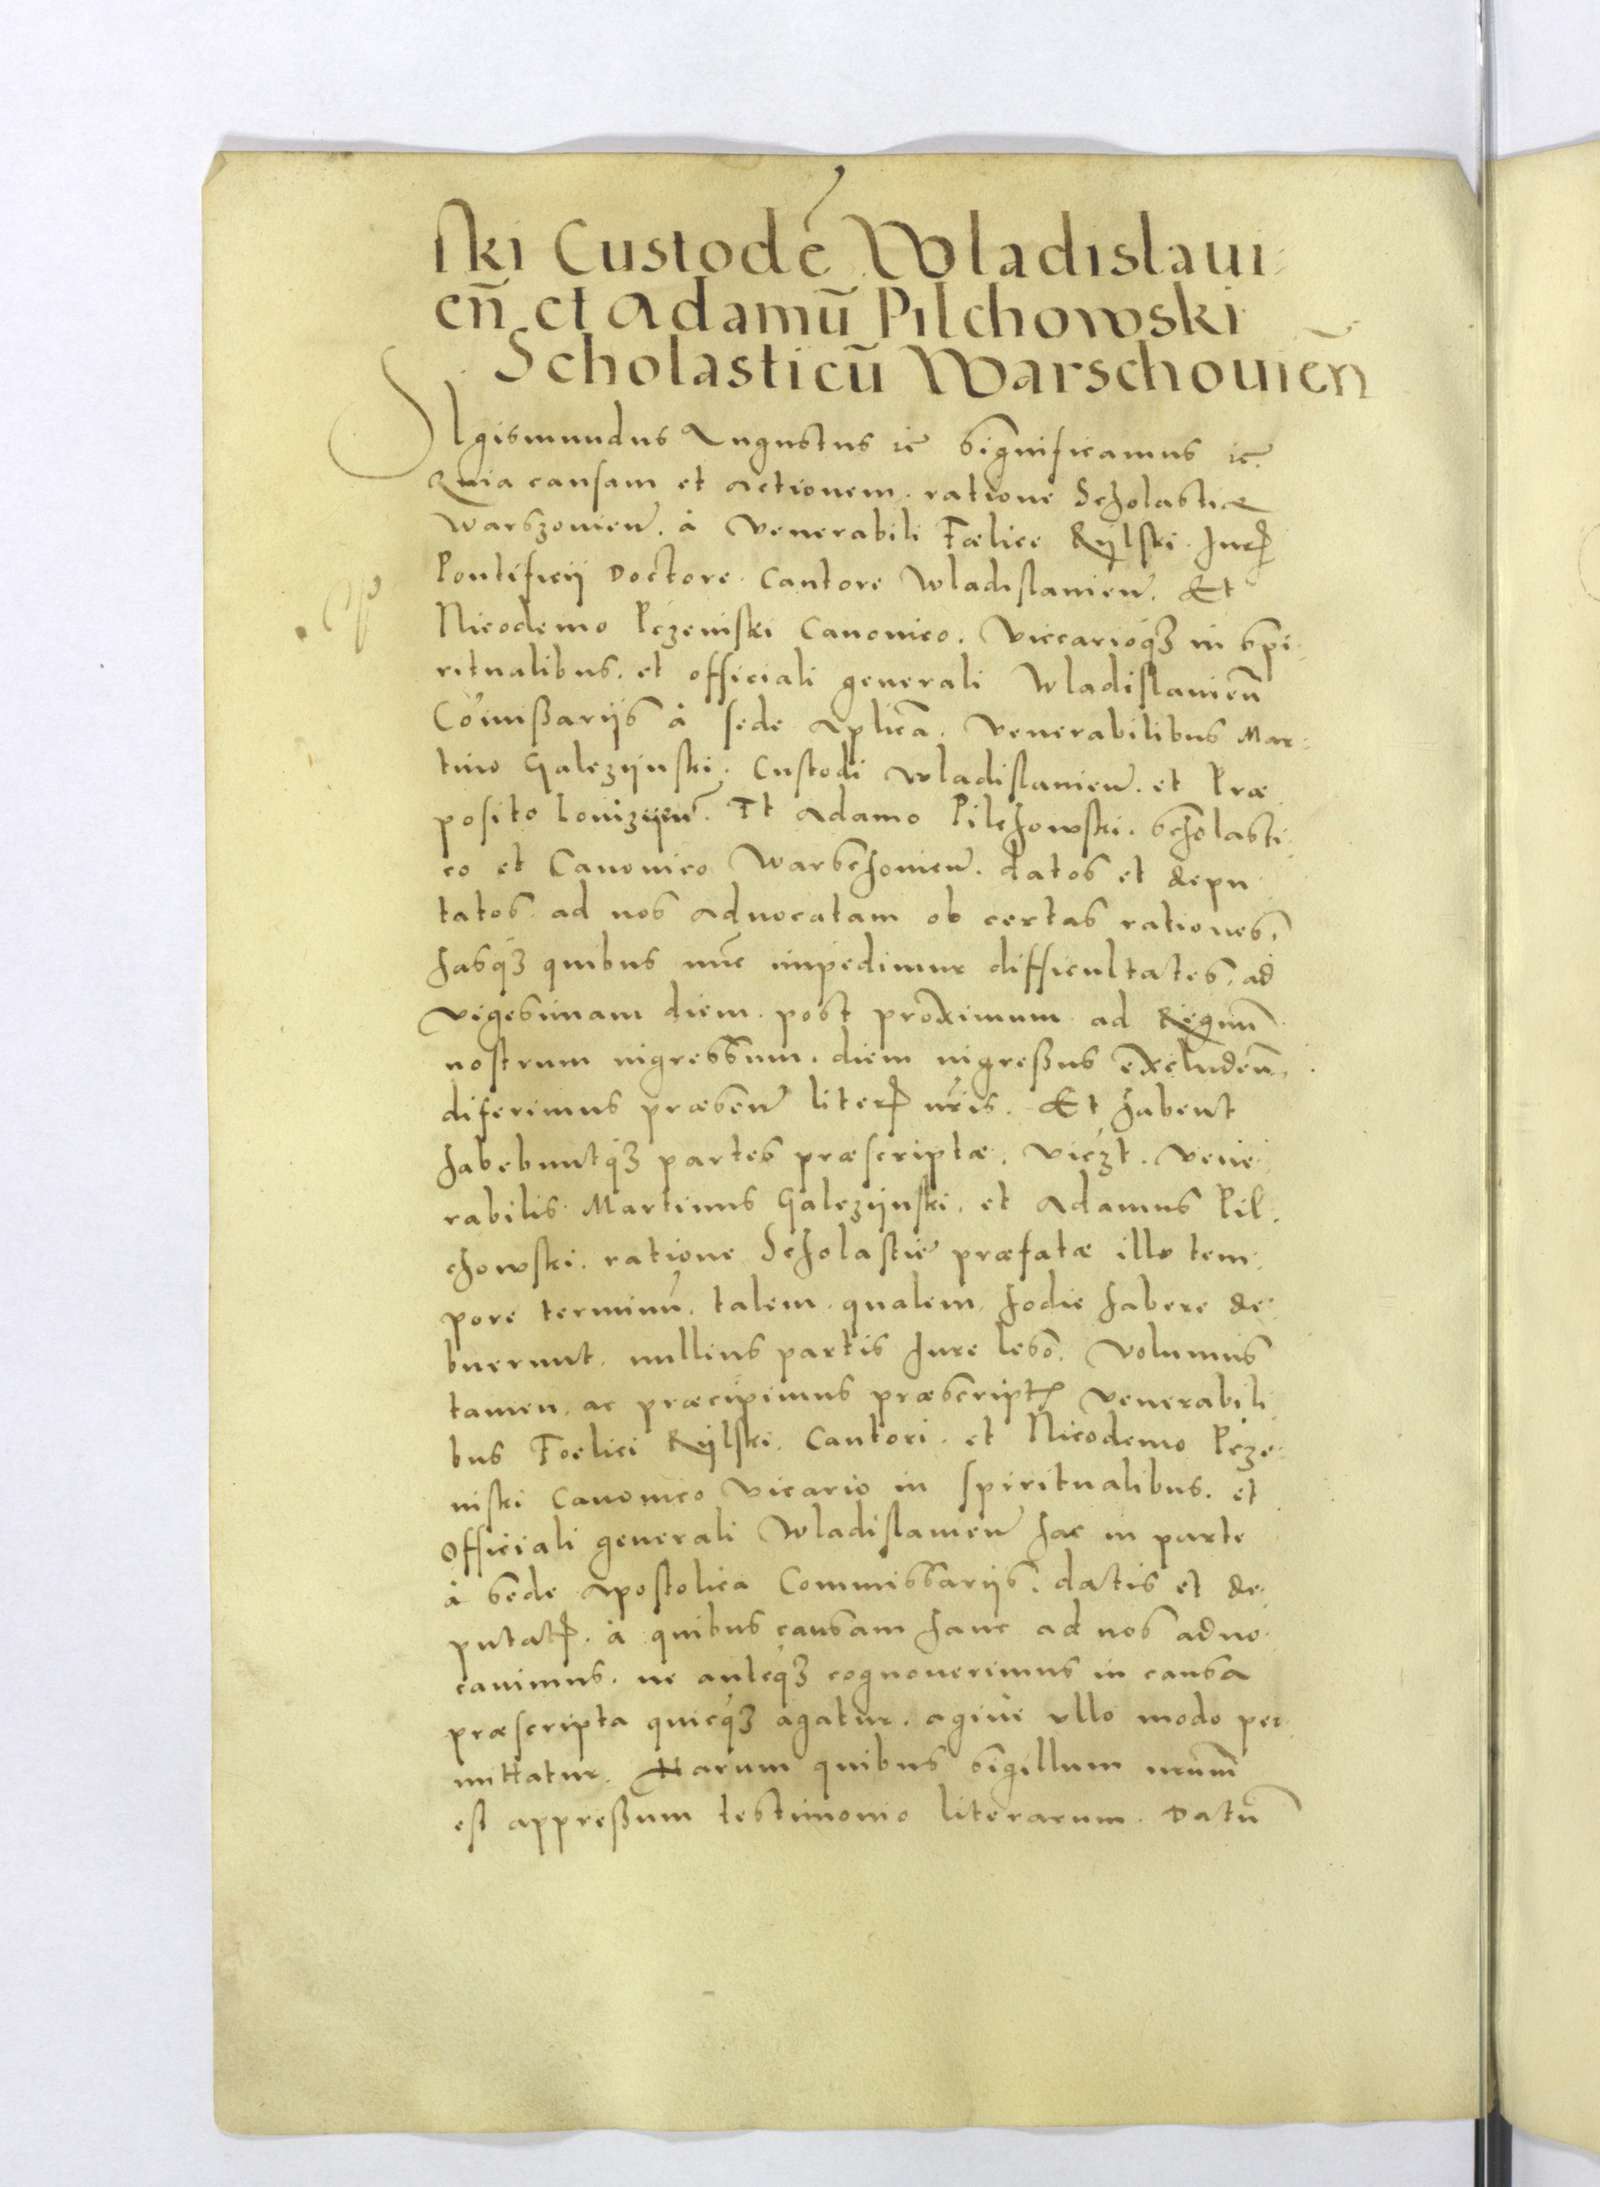 ski Custodē Wladislaui
en̄ et Adamū Pilchowski
Scholasticū Warschouien̄
SIgismundus Augustus ꝛc̄ Significamus ꝛc̄.
Quia causam et actionem. ratione Scholastiæ
Warszouien̄. à Venerabili Fœlice Rÿlski. Juris
Pontificij Doctore. Cantore Wladislauien̄. Et
Nicodemo Pczeniski Canonico. Viccarioqꝫ in Spi
ritualibus. et officiali generali Wladislauien̄
Com̄issarijs à sede Aplicā. Venerabilibus Mar
tino Galezÿnski. Custodi Wladislauien̄. et Præ
posito Louizÿen̄. Et Adamo Pilchowski. Scholasti
co et Canonico Warschouien̄. datos et depu
tatos. ad nos aduocatam ob certas rationes,
hasqꝫ quibus nūc impedimur difficultates. ad
vigesimam diem. post proximum ad Regnū
nostrum ingressum. diem ingressus excluden̄.
diferimus præsen̄ literis nr̄is. Et habent
habebuntqꝫ partes præscriptæ. viczt. vene
rabilis Martinus Galezÿnski. et Adamus Pil
chowski. ratione Scholastie præfatæ illo tem
pore terminū. talem. qualem. hodie habere de
buerunt. nullius partis Jure leso. Volumus
tamen. ac præcipimus præscriptis Venerabili
bus Foelici Rÿlski. Cantori. et Nicodemo Pcze
niski Canonico Vicario in spiritualibus. et
Officiali generali Wladislauien̄ hac in parte
à Sede Apostolica Commissarijs. datis et de
putatis. à quibus causam hanc ad nos aduo
cauimus. ne anteqꝫ cognouerimus in causa
præscripta quicqꝫ agatur. agiue vllo modo per
mittatur. Harum quibus Sigillum nr̄um
est appressum testimonio literarum. Datū